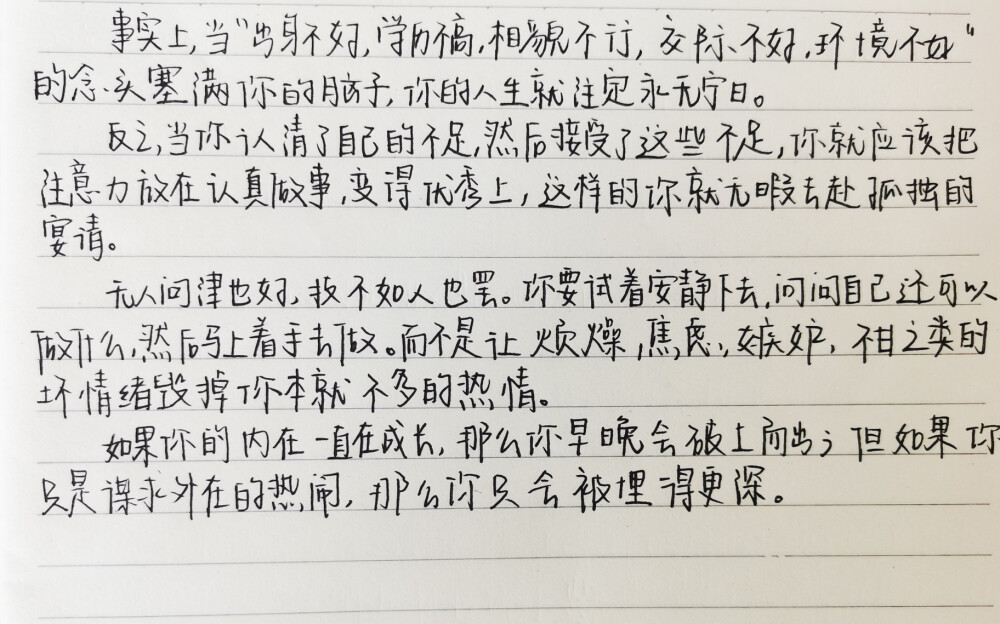 事实上,当“出身不好,学历不高,相貌不行,交际不好,环境不好“
的念头塞满你的脑子,你的人生就注定永无宁日。
反之,当你认清了自己的不足,然后接受了这些不足,你就应该把
注意力放在认真做事,变得优秀上,这样的你就无暇去赴孤独的
宴请。
无人问津也好,技不如人也罢。你要试着安静下去,问问自己还可以
做什么,然后马上着手去做。而不是让烦燥,焦虑,嫉妒,不甘之类的
坏情绪毁掉了你本就不多的热情。
如果你的内在一直在成长,那么你早晚会破土而出;但如果你
只是谋求外在的热闹,那么你只会被埋得更深。